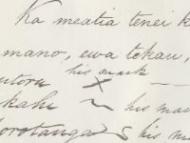 Ka meatia tenei k
mano, ewa tekau,
his mark
utoru x
kahi his ma
orotanga his m